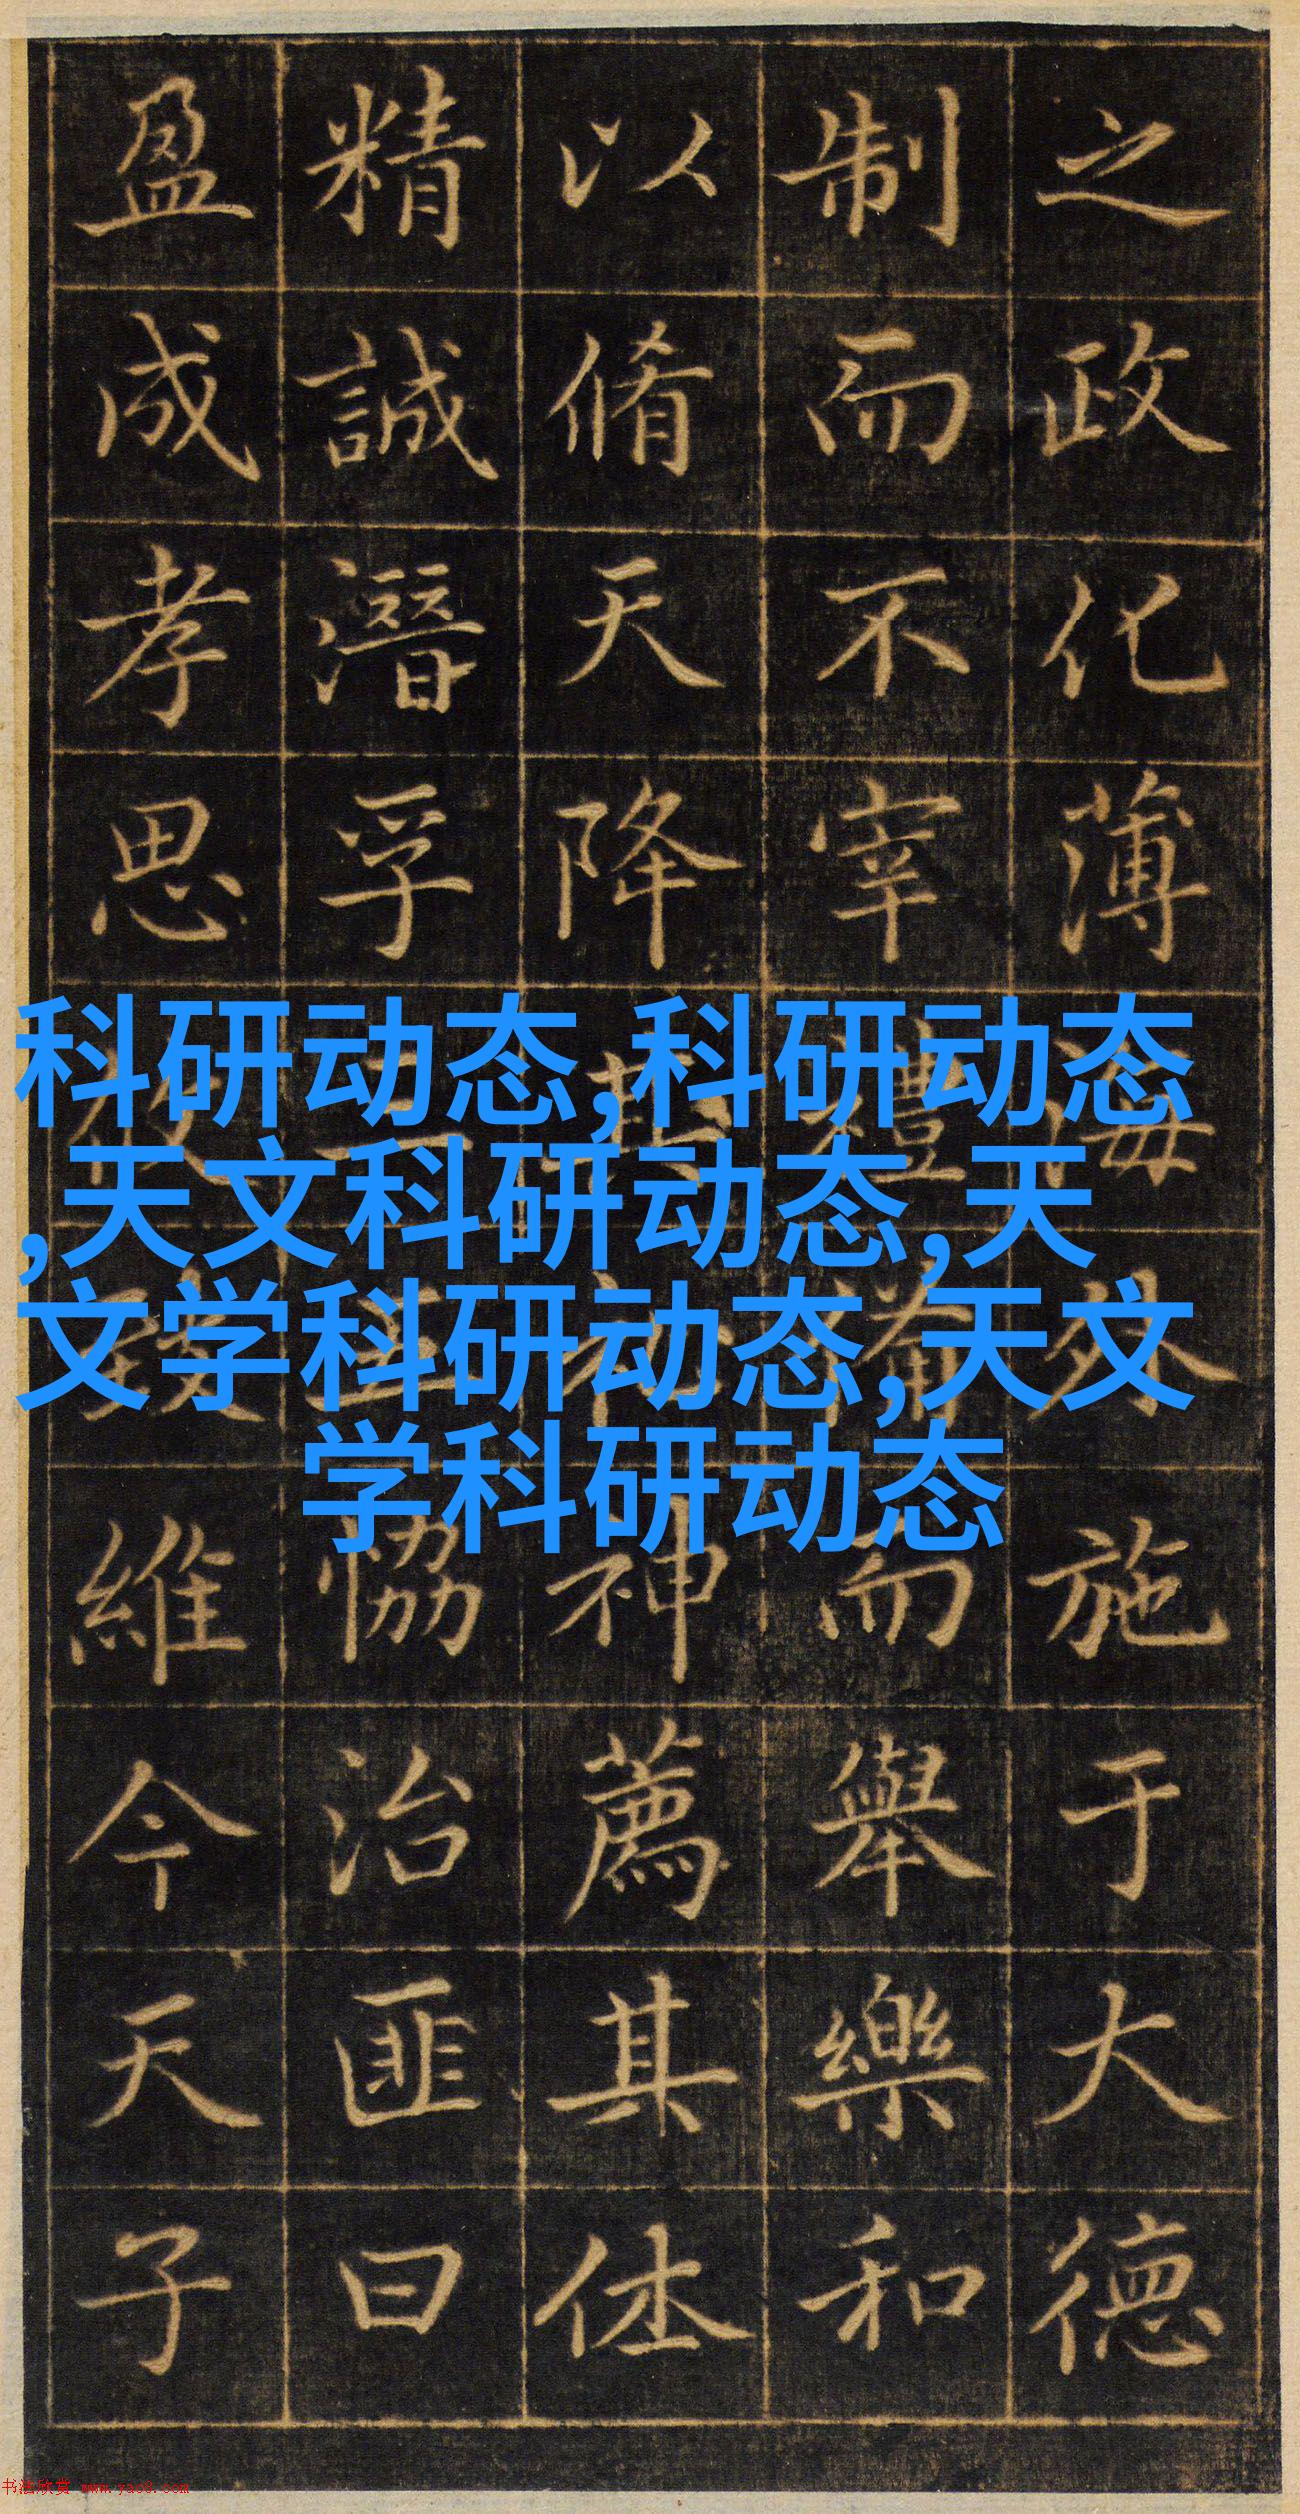 之政化薄海外施于大德
制而不宰禮備而舉樂和
以脩天降其神薦其休
精誠潛孚協洽匪曰
盈成孝思維今天子
科研动态,科研动态
,天文科研动态,天
文学科研动态,天文
学科研动态
书法欣赏 www.yac8.com